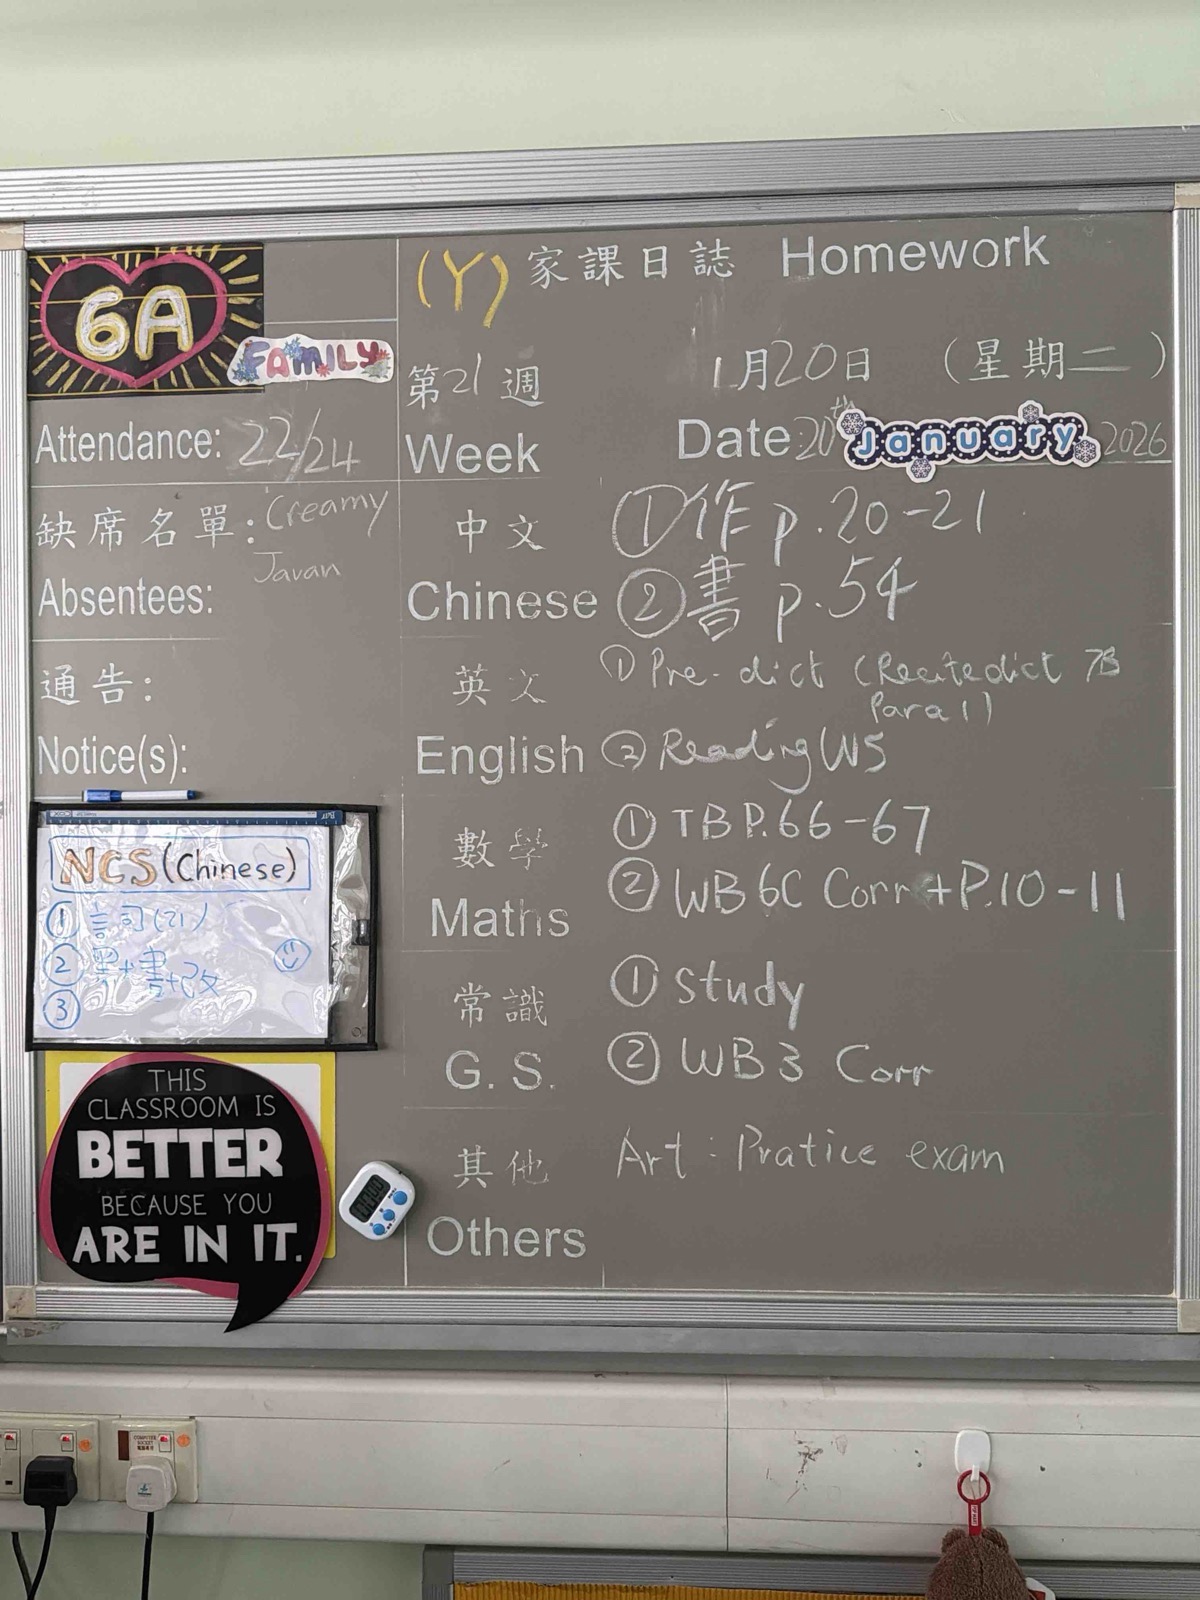 6A
FAMILY
Attendance: 22/24
缺席名單: Creamy
Javan
Absentees:
通告:
Notice(s):
NCS (Chinese)
① 詞(21)
② 書+改
③
THIS
CLASSROOM IS
BETTER
BECAUSE YOU
ARE IN IT.
(Y) 家課日誌 Homework
第21週 1月20日 (星期二)
Week Date: 20th January 2026
中文 ① 作 p.20-21
Chinese ② 書 p.54
英文 ① Pre-dict (Recitedict 7B
Para 1)
English ② Reading WS
數學 ① TB P.66-67
② WB 6C Corr + P.10-11
Maths
常識 ① Study
G. S. ② WB 3 Corr
其他 Art: Pratice exam
Others
COMPUTER
SOCKET